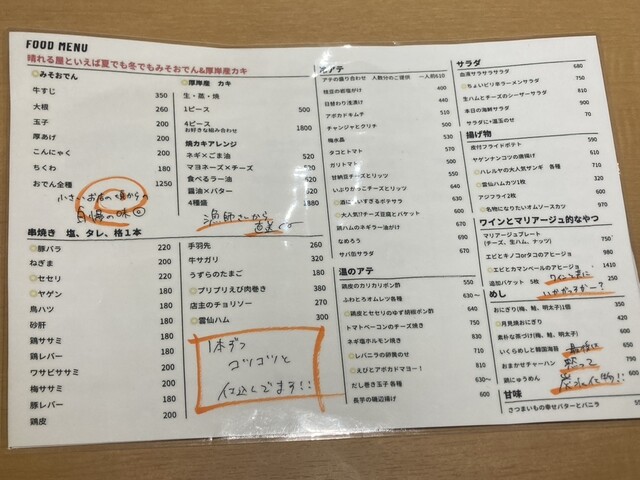 FOOD MENU
晴れる屋といえば夏でも冬でもみそおでん&厚岸産カキ
みそおでん
牛すじ 350
大根 260
玉子 200
厚あげ 200
こんにゃく 200
ちくわ 180
おでん全種 1250
小さいお店の頃からの
自慢の味
厚岸産 カキ
生・蒸・焼
1ピース 500
4ピース
お好きな組み合わせ 1800
焼カキアレンジ
ネギ×ごま油 520
マヨネーズ×チーズ 520
食べるラー油 520
醤油×バター 520
4種盛 1880
漁師さんから
直送
串焼き 塩、タレ、格1本
豚バラ 220
ねぎま 200
セセリ 220
ヤゲン 180
鳥ハツ 180
砂肝 180
鶏ササミ 180
鶏レバー 180
ワサビササミ 200
梅ササミ 200
豚レバー 200
鶏皮 200
手羽先 260
牛サガリ 320
うずらのたまご 180
プリプリえび肉巻き 380
店主のチョリソー 270
雲仙ハム 300
1本ずつ
コツコツと
仕込んでます!!
アテの盛り合わせ 人数分のご提供 一人前610
枝豆の岩塩がけ 400
日替わり浅漬け
アボカドキムチ
チャンジャとクリチ
梅水晶
タコとトマト
ガリトマト
甘納豆チーズとリッツ
いぶりがっこチーズとリッツ
酒にいすぎるポテサラ
大人気!?チーズ豆腐とバケット
鶏ハムのネギラー油がけ
なめろう
サバ缶サラダ
温のアテ
鶏皮のカリカリポン酢
ふわとろオムレツ各種
鶏皮とセセリのゆず胡椒ポン酢
トマトベーコンのチーズ焼き
ネギ塩ホルモン焼き
レバニラの卵黄のせ
えびとアボカドマヨー!
だし巻き玉子 各種
長芋の磯辺揚げ 600
サラダ
血液サラサラサラダ 680
ちょいピリ辛ラーメンサラダ 750
生ハムとチーズのシーザーサラダ 810
本日の海鮮サラダ 900
サラダに+温玉のせ 70
揚げ物
皮付フライドポテト 590
ヤゲンナンコツの唐揚げ 510
ハレルヤの大人気ザンギ 各種 710
雲仙ハムカツ1枚 320
アジフライ2枚
名物になりたいオムソースカツ 970
ワインとマリアージュ的なやつ
マリアージュプレート
(チーズ、生ハム、ナッツ) 750
エビとキノコorタコのアヒージョ 980
エビとカマンベールのアヒージョ 1410
追加バケット 5枚 250
ワインと共に
いかがっすかー?
めし
おにぎり(梅、鮭、明太子)1個
月見焼おにぎり 420
素朴な茶づけ(梅、鮭、明太子)
いくらめしと韓国海苔 650
おまかせチャーハン
鍋にゅうめん 600
最後に
黙って
炭水化物!!
甘味
さつまいもの幸せバターとバニラ